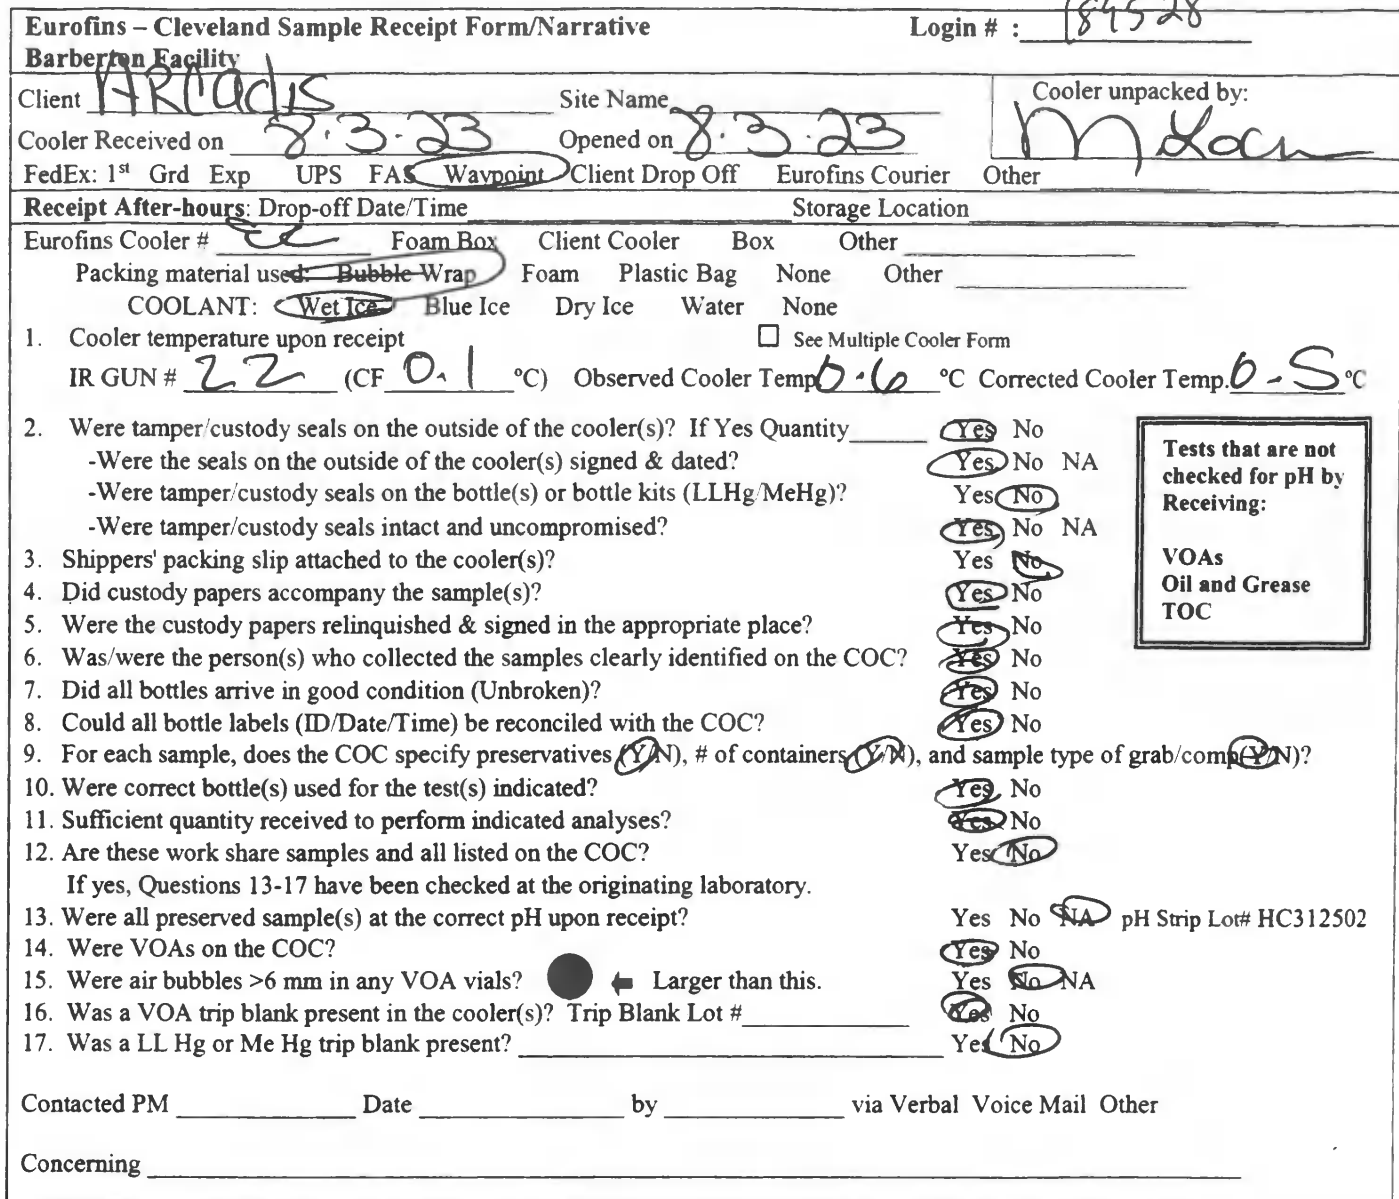 Eurofins – Cleveland Sample Receipt Form/Narrative Login # : 189528
Barberton Facility
Client ARCadis Site Name Cooler unpacked by:
Cooler Received on 8.3.23 Opened on 8.3.23
FedEx: 1st Grd Exp UPS FAS Waypoint Client Drop Off Eurofins Courier Other
Receipt After-hours: Drop-off Date/Time Storage Location
Eurofins Cooler # Foam Box Client Cooler Box Other
Packing material used: Bubble Wrap Foam Plastic Bag None Other
COOLANT: Wet Ice Blue Ice Dry Ice Water None
1. Cooler temperature upon receipt ☐ See Multiple Cooler Form
IR GUN # 22 (CF 0.1 °C) Observed Cooler Temp 0.6 °C Corrected Cooler Temp. 0.5 °C
2. Were tamper/custody seals on the outside of the cooler(s)? If Yes Quantity Yes No
-Were the seals on the outside of the cooler(s) signed & dated? Yes No NA
-Were tamper/custody seals on the bottle(s) or bottle kits (LLHg/MeHg)? Yes No
-Were tamper/custody seals intact and uncompromised? Yes No NA
3. Shippers' packing slip attached to the cooler(s)? Yes No
4. Did custody papers accompany the sample(s)? Yes No
5. Were the custody papers relinquished & signed in the appropriate place? Yes No
6. Was/were the person(s) who collected the samples clearly identified on the COC? Yes No
7. Did all bottles arrive in good condition (Unbroken)? Yes No
8. Could all bottle labels (ID/Date/Time) be reconciled with the COC? Yes No
9. For each sample, does the COC specify preservatives (Y/N), # of containers (Y/N), and sample type of grab/comp(Y/N)?
10. Were correct bottle(s) used for the test(s) indicated? Yes No
11. Sufficient quantity received to perform indicated analyses? Yes No
12. Are these work share samples and all listed on the COC? Yes No
If yes, Questions 13-17 have been checked at the originating laboratory.
13. Were all preserved sample(s) at the correct pH upon receipt? Yes No NA pH Strip Lot# HC312502
14. Were VOAs on the COC? Yes No
15. Were air bubbles >6 mm in any VOA vials? Larger than this. Yes No NA
16. Was a VOA trip blank present in the cooler(s)? Trip Blank Lot # Yes No
17. Was a LL Hg or Me Hg trip blank present? Yes No
Tests that are not
checked for pH by
Receiving:
VOAs
Oil and Grease
TOC
Contacted PM Date by via Verbal Voice Mail Other
Concerning